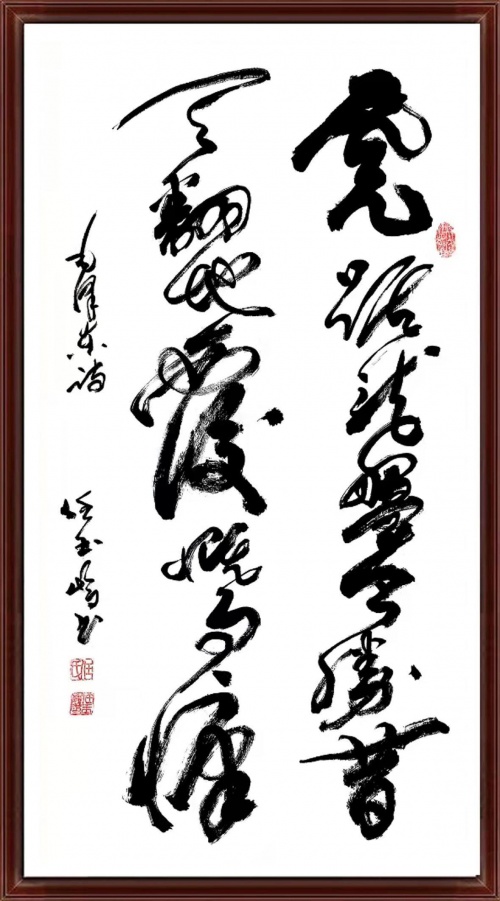 虎踞龙盘今胜昔
天翻地覆慨而慷
毛泽东诗
任玉岭书